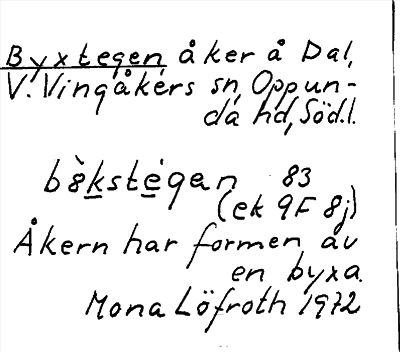 Byxtegen, åker å Dal,
V. Vingåkers sn, Oppun-
da hd, Söd.l.
bỳ̀kstégan 83
(ek 9F 8j)
Åkern har formen av
en byxa.
Mona Löfroth 1972